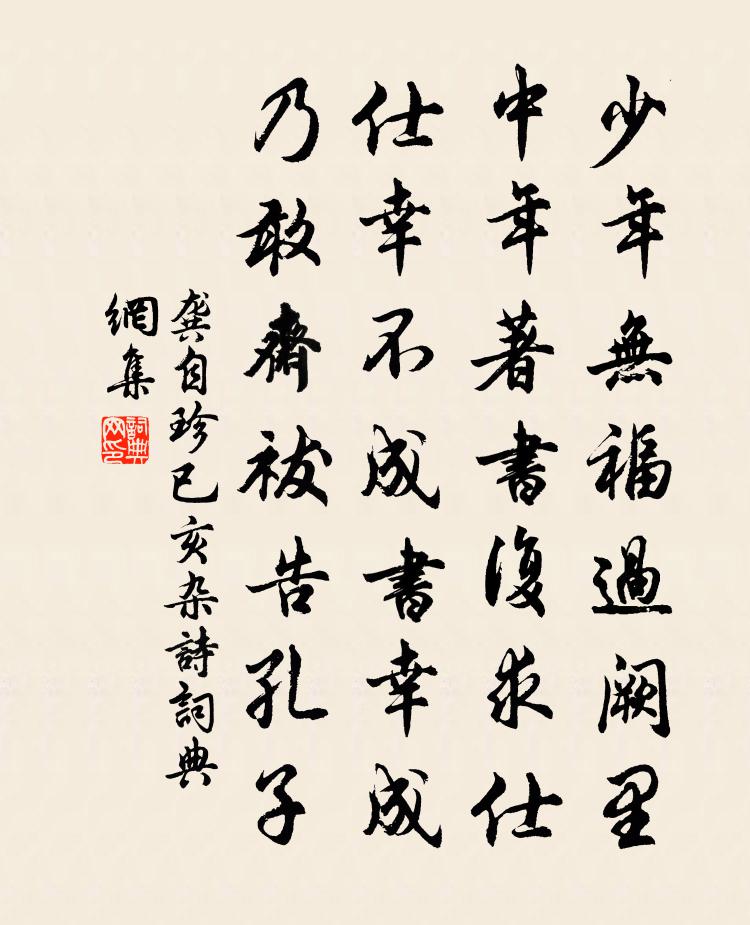 少年無福過闕里
中年著書復求仕
仕幸不成書幸成
乃敢齋祓告孔子
龔自珍己亥杂詩詞典
網集
詞典
网印